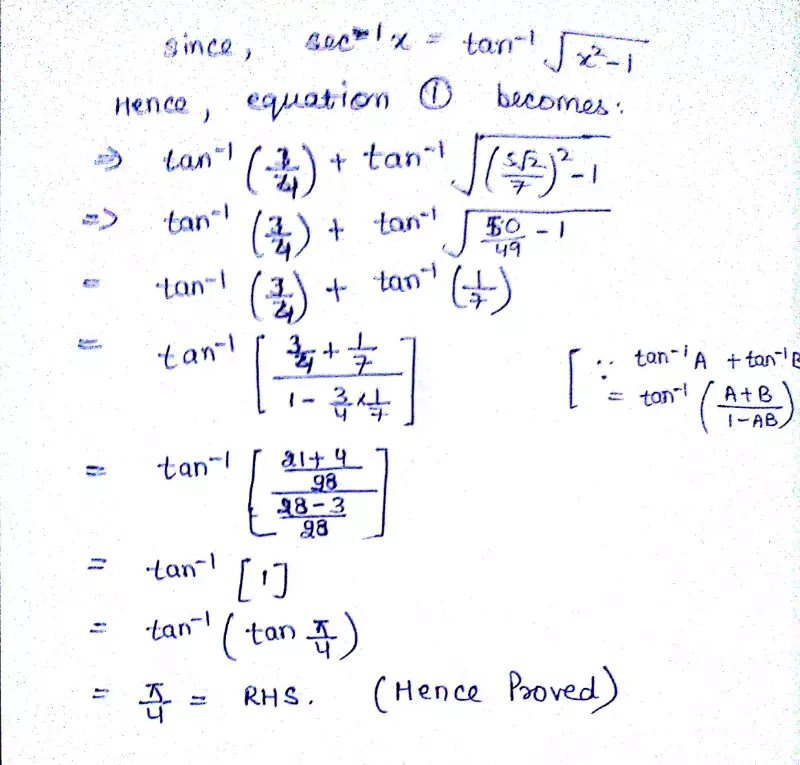 since, sec⁻¹x = tan⁻¹ √(x²-1)
Hence, equation ① becomes:
⇒ tan⁻¹ (3/4) + tan⁻¹ √((5√2/7)²-1)
=> tan⁻¹ (3/4) + tan⁻¹ √(50/49 - 1)
= tan⁻¹ (3/4) + tan⁻¹ (1/7)
= tan⁻¹ [(3/4 + 1/7)/(1 - 3/4 x 1/7)] [∵ tan⁻¹A + tan⁻¹B
= tan⁻¹ ((A+B)/(1-AB))
= tan⁻¹ [((21+4)/28)/((28-3)/28)]
= tan⁻¹ [1]
= tan⁻¹ (tan π/4)
= π/4 = RHS. (Hence Proved)